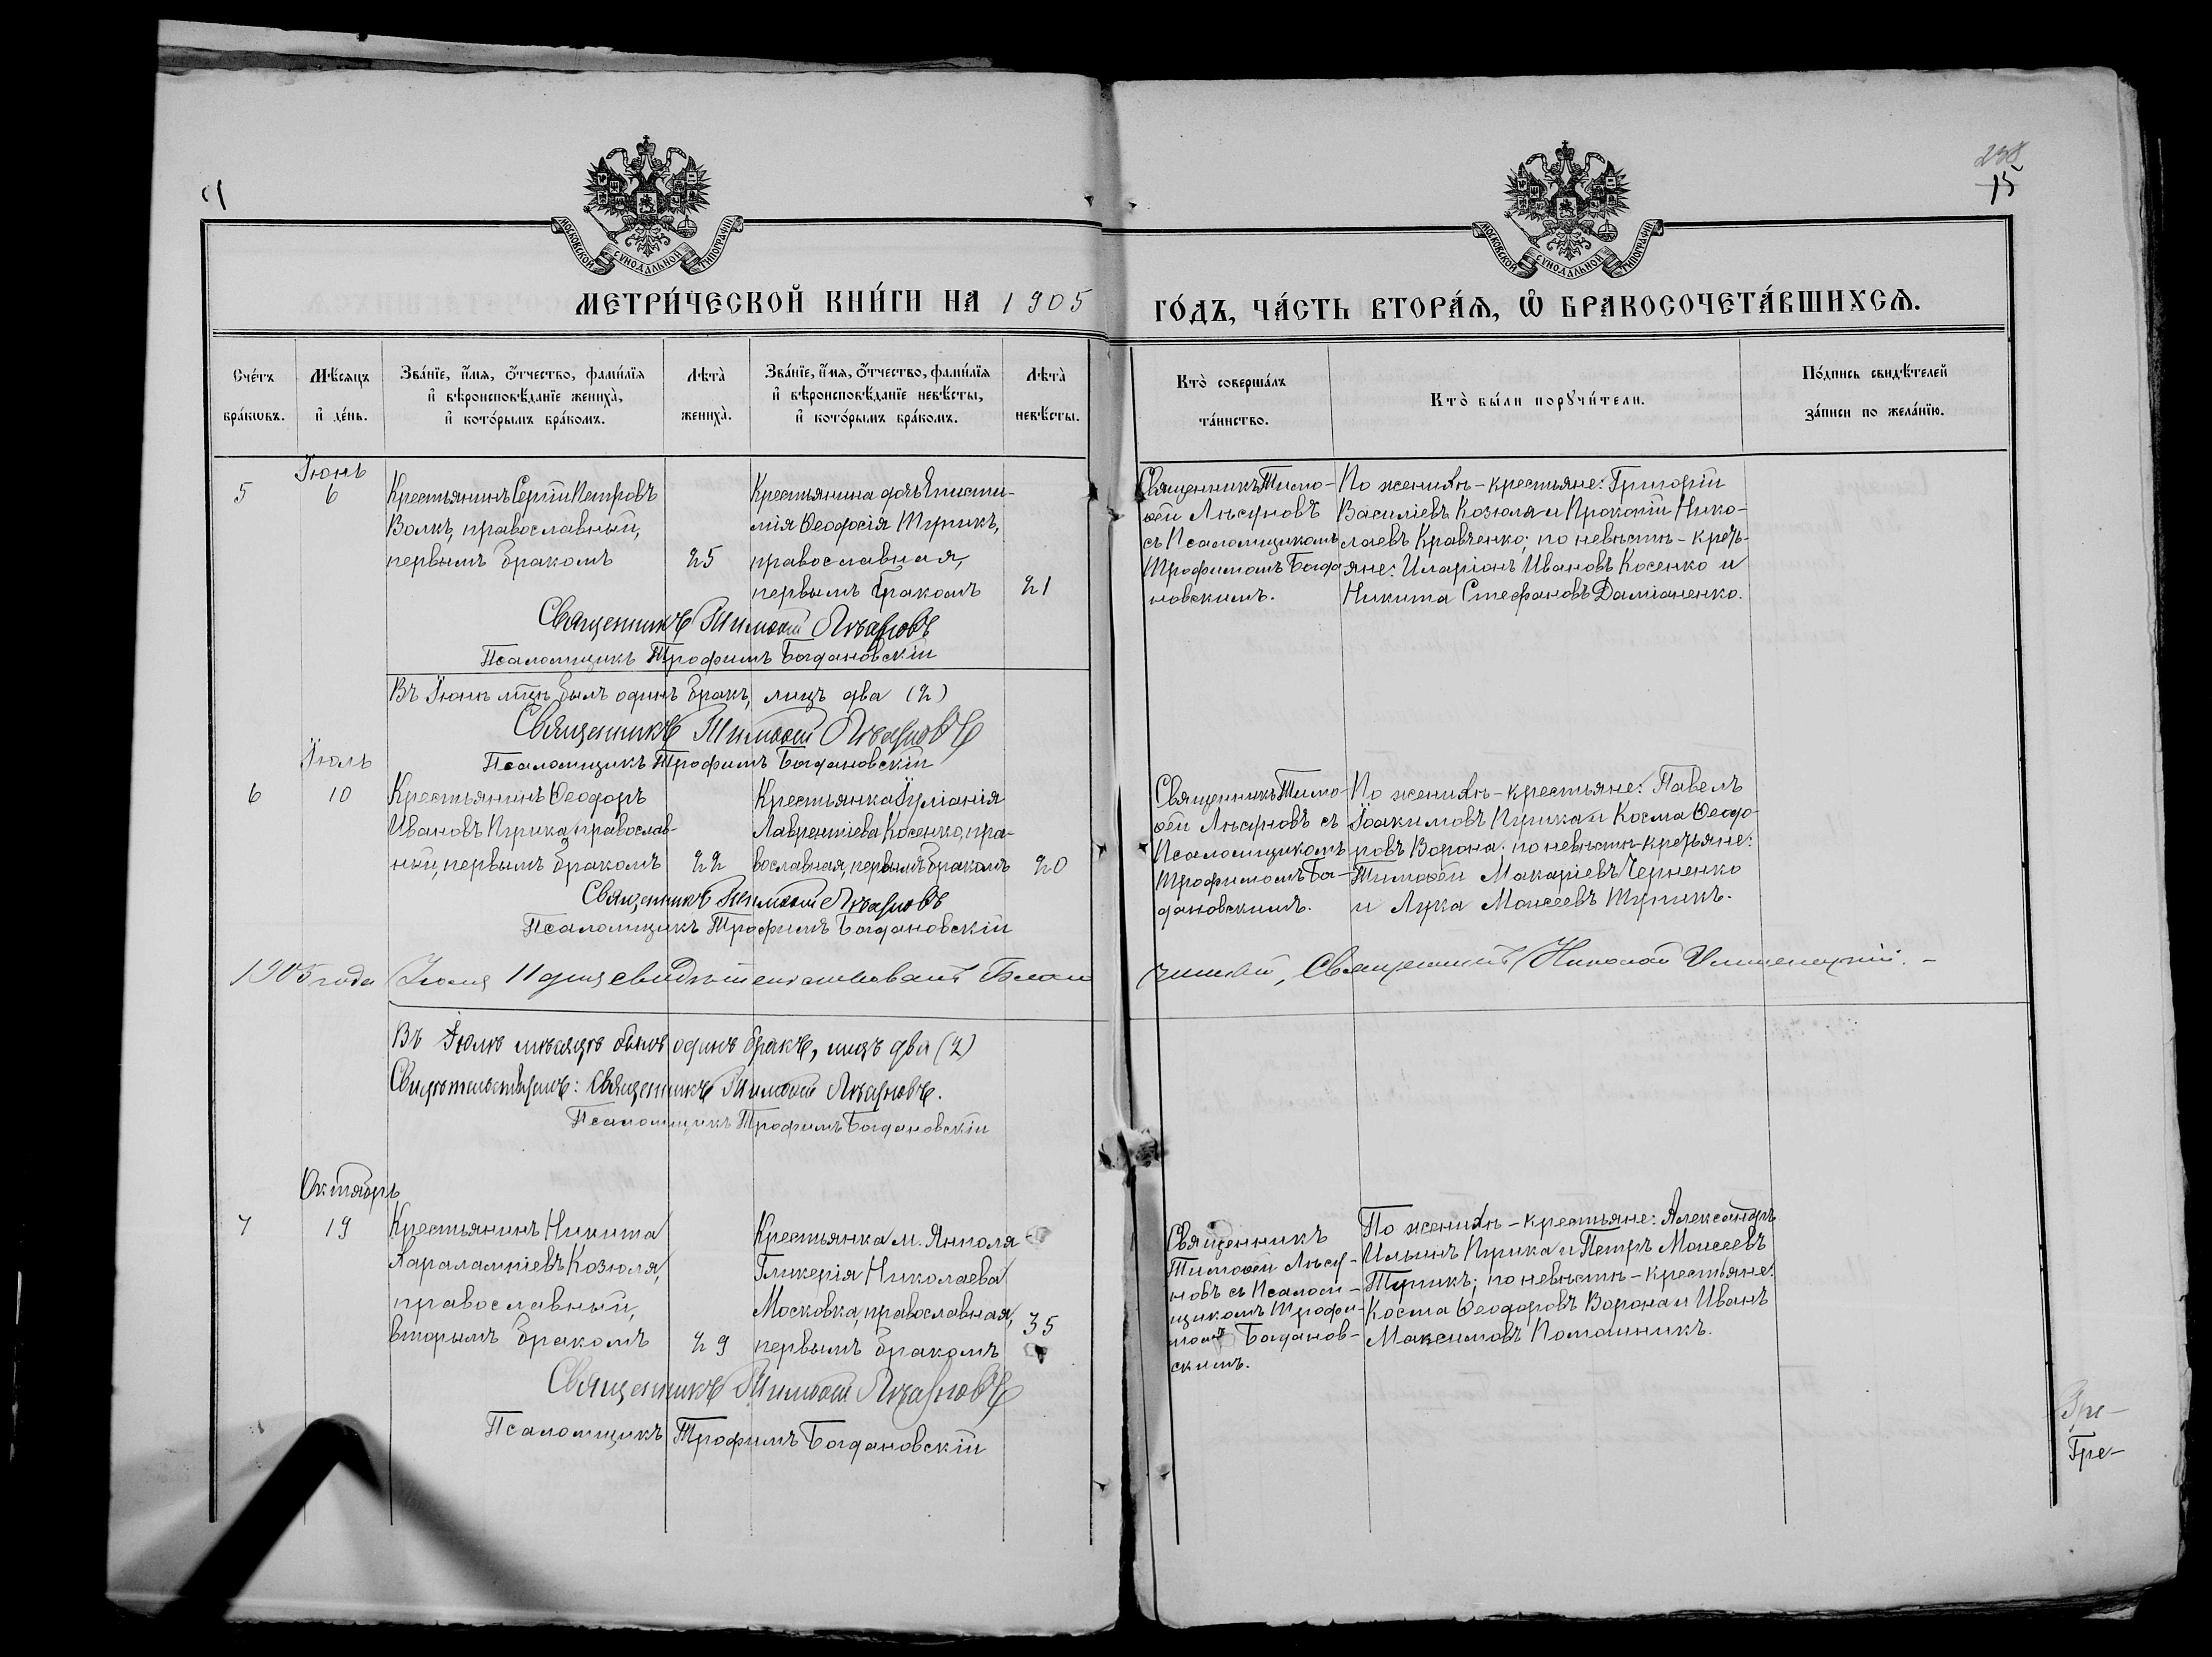 238
15
МОСКОВСКОЙ СУНОДАЛЬНОЙ ТИПОГРАФІИ
МОСКОВСКОЙ СУНОДАЛЬНОЙ ТИПОГРАФІИ
МЕТРИ́ЧЕСКОЙ КНИ́ГИ НА 1905
ГО́ДЪ, ЧА́СТЬ ВТОРА́Я, Ѡ҆ БРАКОСОЧЕТА́ВШИХСѦ.
Сче́тъ бра́кѡвъ.
Мѣ́сѧцъ и҆ де́нь.
Зва́нїе, и҆́мѧ, ѻ҆́тчество, фами́лїѧ
и҆ вѣроисповѣ́данїе жениха̀,
и҆ кото́рымъ бра́комъ.
Лѣта̀ жениха̀.
Зва́нїе, и҆́мѧ, ѻ҆́тчество, фами́лїѧ
и҆ вѣроисповѣ́данїе невѣ́сты,
и҆ кото́рымъ бра́комъ.
Лѣта̀ невѣ́сты.
Кто̀ соверша́лъ
та́инство.
Кто̀ бы́ли порꙋчи́тели.
По́дпись свидѣ́телей
за́писи по жела́нїю.
Іюнь
5 6
Крестьянинъ Сергій Петровъ
Волкъ, православный,
первымъ бракомъ 25
Крестьянина дочь Эписти-
мія Ѳеодосія Турикъ,
православная,
первымъ бракомъ 21
Священникъ Тимо-
ѳей Лѣсуновъ
съ Псаломщикомъ
Трофимомъ Богда
новскимъ.
По женихѣ – крестьяне: Григорій
Василіевъ Козюля и Прокопій Нико-
лаевъ Кравченко; по невѣстѣ – крест-
яне: Иларіонъ Ивановъ Косенко и
Никита Стефановъ Даміаненко.
Священникъ Тимоѳей Лѣсуновъ
Псаломщикъ Трофимъ Богдановскій
Въ Іюнѣ м–цѣ былъ одинъ бракъ, лицъ два (2)
Священникъ Тимоѳей Лѣсуновъ
Псаломщикъ Трофимъ Богдановскій
Іюль
6 10
Крестьянинъ Ѳеодоръ
Ивановъ Пурика, православ-
ный, первымъ бракомъ 22
Крестьянка Іуліанія
Лаврентіева Косенко, пра-
вославная, первымъ бракомъ 20
Священникъ Тимо-
ѳей Лѣсуновъ съ
Псаломщикомъ
Трофимомъ Бог-
дановскимъ.
По женихѣ – крестьяне: Павелъ
Іоакимовъ Пурика и Косма Ѳеодо-
ровъ Ворона. по невѣстѣ – крестьяне:
Тимоѳей Макаріевъ Черненко
и Лука Моисеевъ Турикъ.
Священникъ Тимоѳей Лѣсуновъ
Псаломщикъ Трофимъ Богдановскій
1905 года Іюля 11 дня свидѣтельствовалъ Благо
чинный, Священникъ Николай
Въ Іюлѣ мѣсяцѣ былъ одинъ бракъ, лицъ два (2)
Свидѣтельствуемъ: Священникъ Тимоѳей Лѣсуновъ.
Псаломщикъ Трофимъ Богдановскій
Октябрь
7 19
Крестьянинъ Никита
Харалампіевъ Козюля,
православный,
вторымъ бракомъ 29
Крестьянка м. Янполя
Гликерія Николаева
Московка, православная,
первымъ бракомъ 35
Священникъ
Тимоѳей Лѣсу-
новъ съ Псалом-
щикомъ Трофи-
момъ Богданов-
скимъ.
По женихѣ – крестьяне: Александръ
Ильинъ Пурика и Петръ Моисеевъ
Турикъ; по невѣстѣ – крестьяне:
Косма Ѳеодоровъ Ворона и Иванъ
Максимовъ Помашникъ.
Священникъ Тимоѳей Лѣсуновъ
Псаломщикъ Трофимъ Богдановскій
Гре–
Гре–